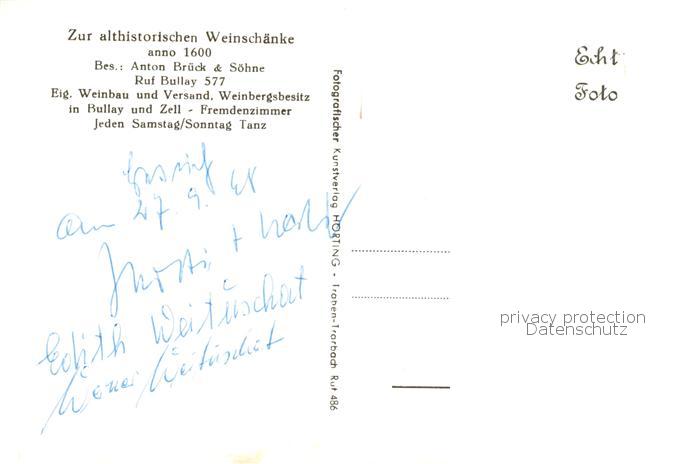 Zur althistorischen Weinschänke
anno 1600
Bes.: Anton Brück & Söhne
Ruf Bullay 577
Eig. Weinbau und Versand, Weinbergsbesitz
in Bullay und Zell - Fremdenzimmer
Jeden Samstag/Sonntag Tanz
am 27. 9.
+
Edith Weituschat
Weituschat
Fotografischer Kunstverlag HORTING - Traben-Trarbach Ruf 486
Echt
Foto
privacy protection
Datenschutz